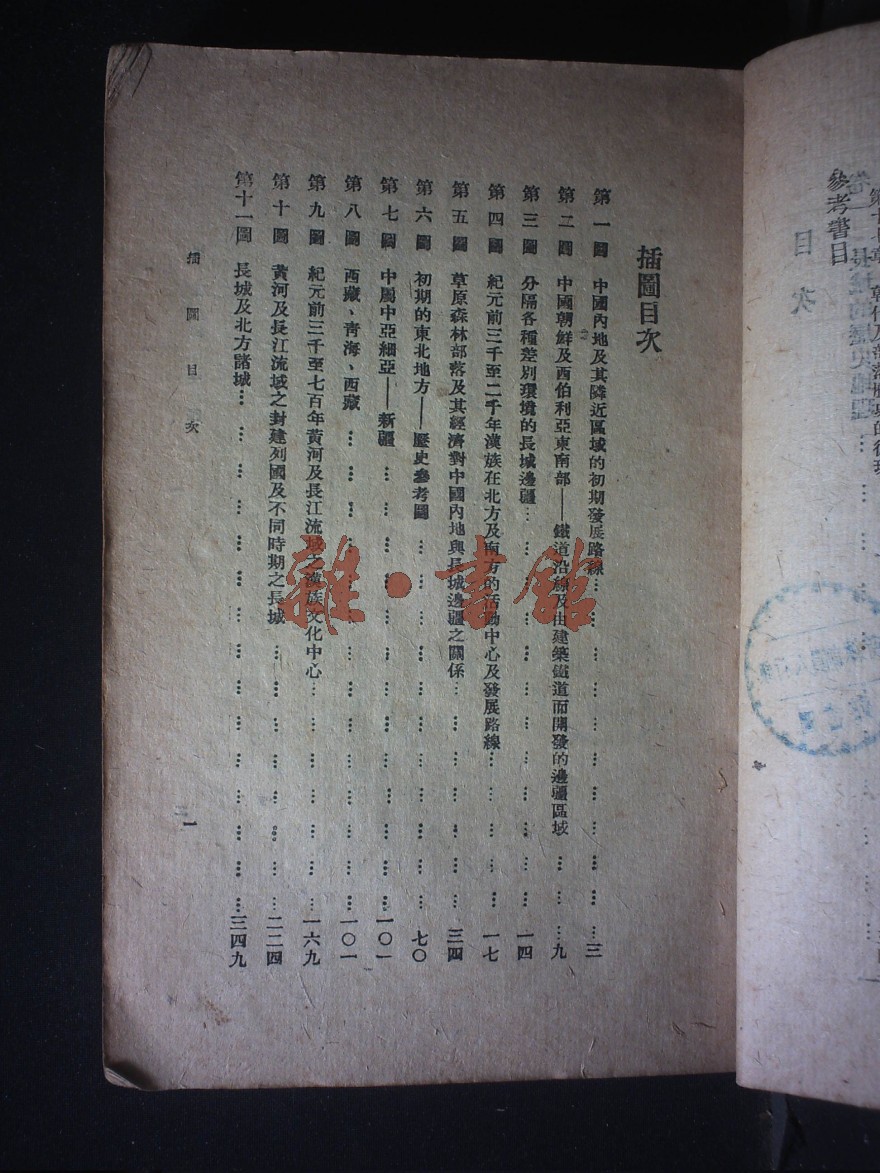 參考書目
目次
插圖目次
第一圖 中國內地及其隣近區域的初期發展路線…………三
第二圖 中國朝鮮及西伯利亞東南部——鐵道沿線及由建築鐵道而開發的邊疆區域…………九
第三圖 分隔各種差別環境的長城邊疆…………一四
第四圖 紀元前三千至二千年漢族在北方及南方的活動中心及發展路線…………一七
第五圖 草原森林部落及其經濟對中國內地與長城邊疆之關係…………三四
第六圖 初期的東北地方——歷史參考圖…………七〇
第七圖 中屬中亞細亞——新疆…………一〇一
第八圖 西藏、青海、西藏…………一〇一
第九圖 紀元前三千至七百年黃河及長江流域之漢族文化中心…………一六九
第十圖 黃河及長江流域之封建列國及不同時期之長城…………二二四
第十一圖 長城及北方諸城…………三四九
插圖目次
一
雜·書館